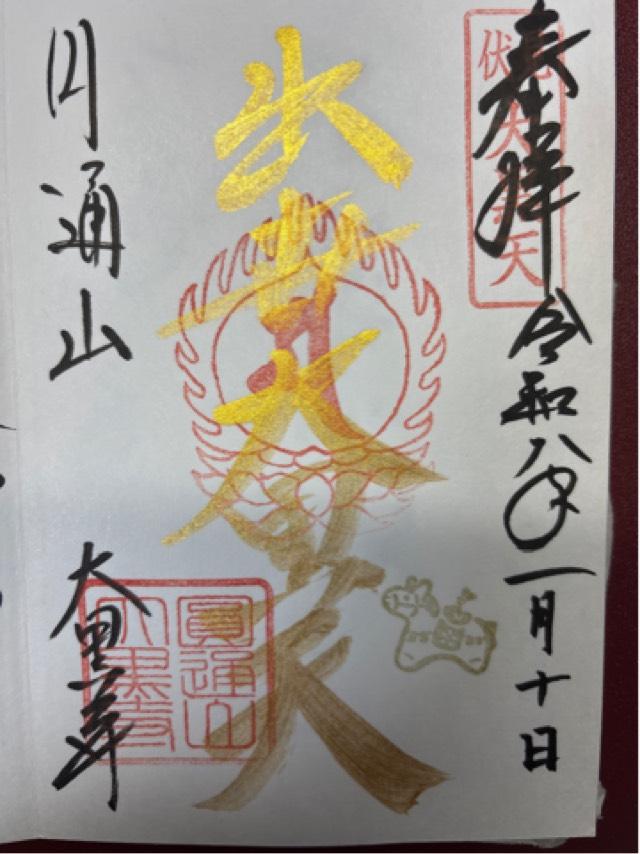 奉拝 令和八年一月十日
伏見大黒天
出世大黒天
円通山 大黒寺
圓通山
大黒寺